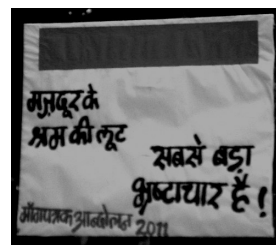 मज़दूर के
श्रम की लूट
सबसे बड़ा
भ्रष्टाचार है!
माँगपत्रक आन्दोलन 2011